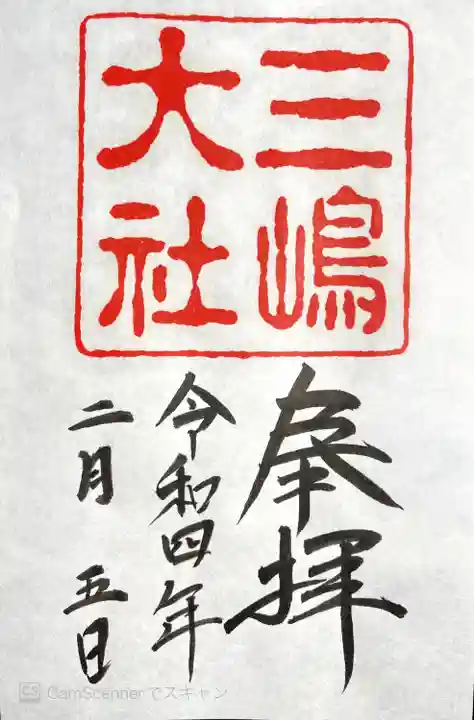 三嶋
大社
奉拝
令和四年
二月五日
CS CamScannerでスキャン